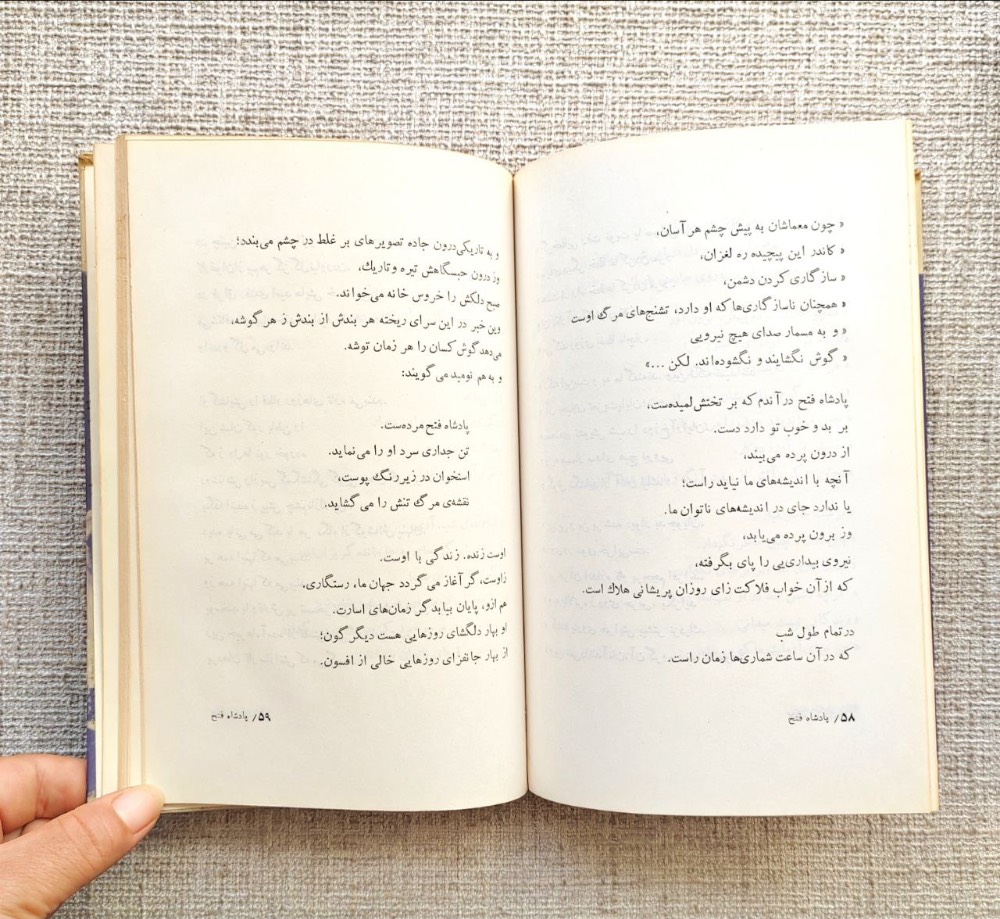 « چون معماشان به پیش چشم هر آسان،
« کاندر این پیچیده ره لغزان،
« سازگاری کردن دشمن،
« همچنان ناسازگاری‌ها که او دارد، تشنج‌های مرگ اوست
« و به مسمار صدای هیچ نیرویی
« گوش نگشایند و نگشوده‌اند. لکن ...»
پادشاه فتح در آندم که بر تختش لمیده‌ست،
بر بد و خوب تو دارد دست.
از درون پرده می‌بیند،
آنچه با اندیشه‌های ما نیاید راست؛
یا ندارد جای در اندیشه‌های ناتوان ما.
وز برون پرده می‌یابد،
نیروی بیداریی را پای بگرفته،
که از آن خواب فلاکت زای روزان پریشانی هلاک است.
در تمام طول شب
که در آن ساعت شماری‌ها زمان راست.
۵۸/ پادشاه فتح
و به تاریکی درون جاده تصویرهای بر غلط در چشم می‌بندد؛
وز درون حبسگاهش تیره و تاریك،
صبح دلکش را خروس خانه می‌خواند.
وین خبر در این سرای ریخته هر بندش از بندش ز هر گوشه،
می‌دهد گوش کسان را هر زمان توشه.
و به هم نومید می‌گویند:
پادشاه فتح مرده‌ست.
تن جداری سرد او را می‌نماید.
استخوان در زیر رنگ پوست،
نقشه‌ی مرگ تنش را می‌گشاید.
اوست زنده. زندگی با اوست.
زاوست، گر آغاز می‌گردد جهان ما، رستگاری.
هم ازو، پایان بیابد گر زمان‌های اسارت.
او بهار دلگشای روزهایی هست دیگر گون؛
از بهار جانفزای روزهایی خالی از افسون.
۵۹/ پادشاه فتح